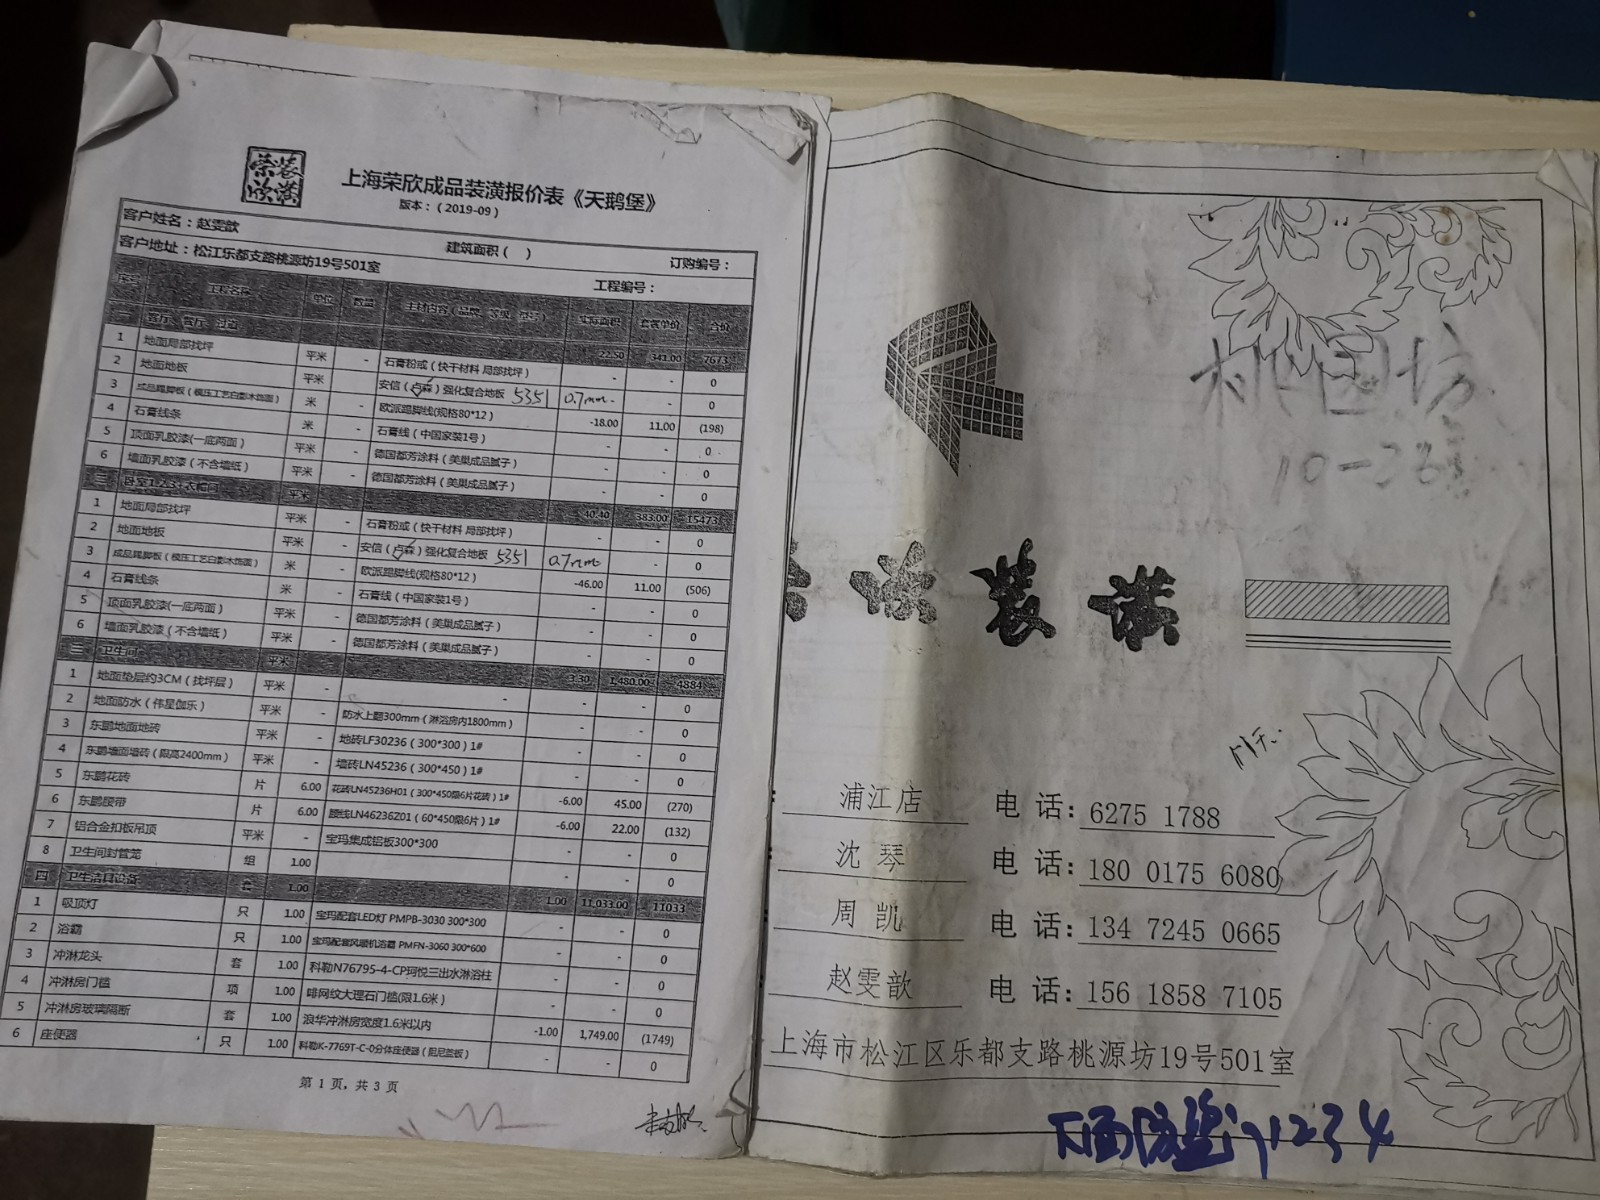 荣欣装潢
上海荣欣成品装潢报价表《天鹅堡》
版本：（2019-09）
客户姓名：赵雯歆 建筑面积（ ） 订购编号：
客户地址：松江乐都支路桃源坊19号501室 工程编号：
序号 工程名称 单位 数量 主材内容（品牌、等级、型号） 实际面积 套餐单价 合价
一 客厅、餐厅、过道 22.50 341.00 7673
1 地面局部找坪 平米 - 石膏粉或（快干材料 局部找坪） - - 0
2 地面地板 平米 安信（卢森）强化复合地板 5351 0.7mm - - 0
3 成品踢脚板（模压工艺白影木饰面） 米 - 欧派踢脚线(规格80*12) -18.00 11.00 (198)
4 石膏线条 米 - 石膏线（中国家装1号） - - 0
5 顶面乳胶漆(一底两面) 平米 - 德国都芳涂料（美巢成品腻子） - - 0
6 墙面乳胶漆（不含墙纸） 平米 - 德国都芳涂料（美巢成品腻子） - - 0
二 卧室1.2.3+衣帽间 平米 40.40 383.00 15473
1 地面局部找坪 平米 - 石膏粉或（快干材料 局部找坪） - - 0
2 地面地板 平米 - 安信（卢森）强化复合地板 5351 0.7mm - - 0
3 成品踢脚板（模压工艺白影木饰面） 米 - 欧派踢脚线(规格80*12) -46.00 11.00 (506)
4 石膏线条 米 - 石膏线（中国家装1号） - - 0
5 顶面乳胶漆(一底两面) 平米 - 德国都芳涂料（美巢成品腻子） - - 0
6 墙面乳胶漆（不含墙纸） 平米 - 德国都芳涂料（美巢成品腻子） - - 0
三 卫生间 平米 3.30 1,480.00 4884
1 地面垫层约3CM（找坪层） 平米 - - - - 0
2 地面防水（伟星伽乐） 平米 - 防水上翻300mm（淋浴房内1800mm） - - 0
3 东鹏地面地砖 平米 - 地砖LF30236（300*300）1# - - 0
4 东鹏墙面墙砖（限高2400mm） 平米 - 墙砖LN45236（300*450）1# - - 0
5 东鹏花砖 片 6.00 花砖LN45236H01（300*450限6片花砖）1# -6.00 45.00 (270)
6 东鹏腰带 片 6.00 腰线LN46236Z01（60*450限6片）1# -6.00 22.00 (132)
7 铝合金扣板吊顶 平米 - 宝玛集成铝板300*300 - - 0
8 卫生间封管笼 组 1.00 - - 0
四 卫生洁具设备 套 1.00 1.00 11,033.00 11033
1 吸顶灯 只 1.00 宝玛配套LED灯 PMPB-3030 300*300 - - 0
2 浴霸 只 1.00 宝玛配套风暖机浴霸 PMFN-3060 300*600 - - 0
3 冲淋龙头 套 1.00 科勒N76795-4-CP珂悦三出水淋浴柱 - - 0
4 冲淋房门槛 项 1.00 啡网纹大理石门槛(限1.6米） - - 0
5 冲淋房玻璃隔断 套 1.00 浪华冲淋房宽度1.6米以内 -1.00 1,749.00 (1749)
6 座便器 只 1.00 科勒K-7769T-C-0分体座便器（阻尼盖板） - - 0
第 1 页, 共 3 页
桃园坊
欣装潢
浦江店 电 话: 6275 1788
沈 琴 电 话: 180 0175 6080
周 凯 电 话: 134 7245 0665
赵雯歆 电 话: 156 1858 7105
上海市松江区乐都支路桃源坊19号501室
1234